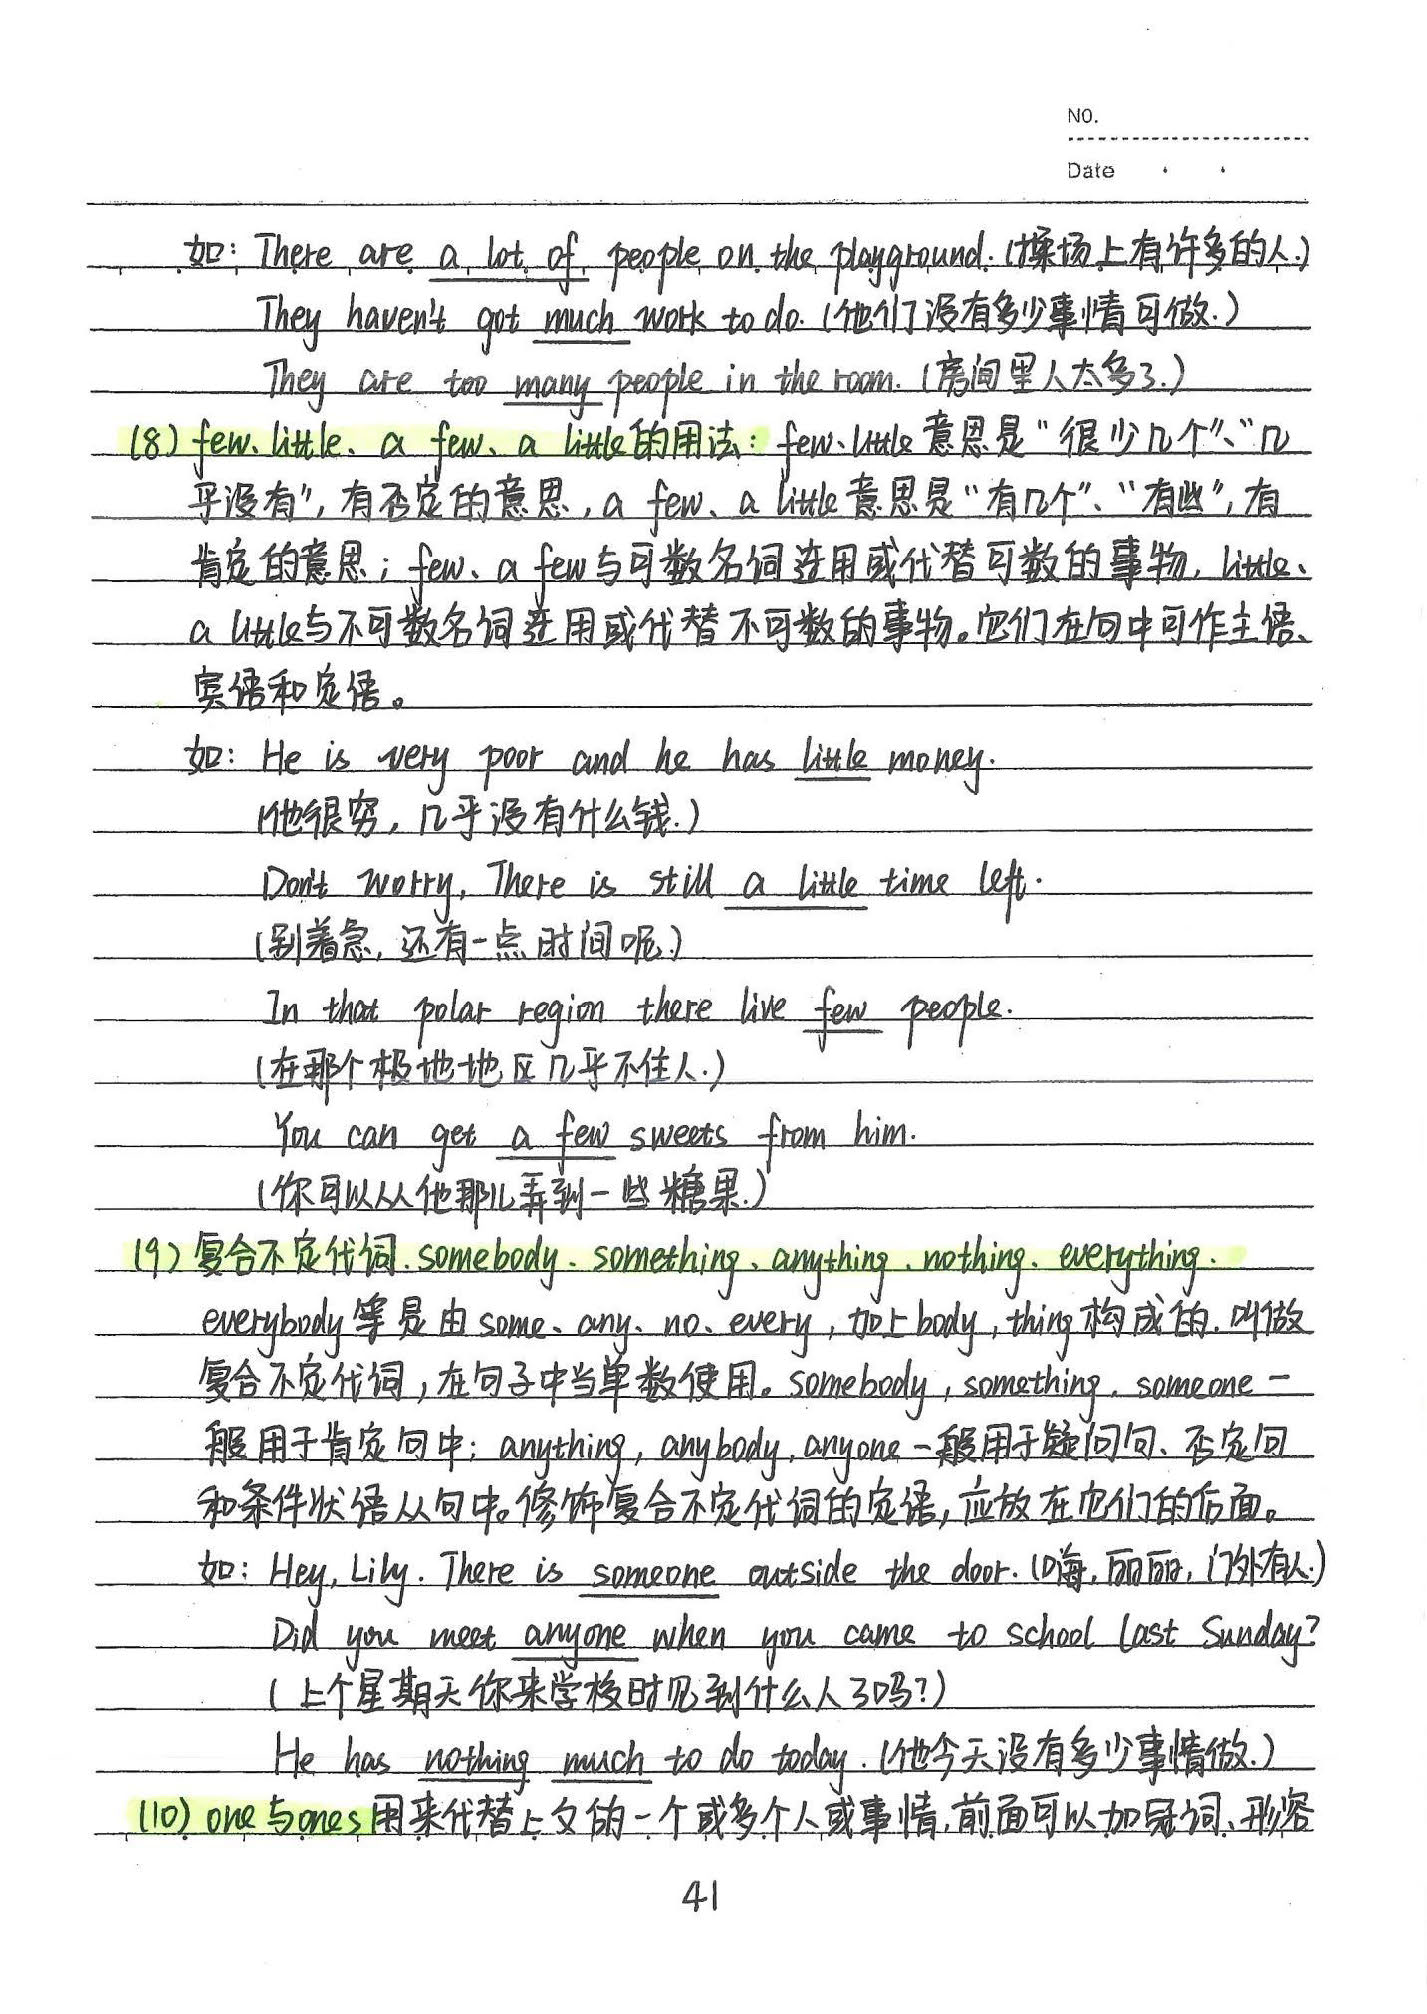 NO.
Date
如: There are a lot of people on the playground. (操场上有许多的人.)
They haven't got much work to do. (他们没有多少事情可做.)
They are too many people in the room. (房间里人太多了.)
(8) few、little、a few、a little的用法: few、little意思是"很少几个"、"几
乎没有", 有否定的意思, a few、a little意思是"有几个"、"有些", 有
肯定的意思; few、a few与可数名词连用或代替可数的事物, little、
a little与不可数名词连用或代替不可数的事物。它们在句中可作主语、
宾语和定语。
如: He is very poor and he has little money.
(他很穷, 几乎没有什么钱.)
Don't worry, There is still a little time left.
(别着急, 还有一点时间呢.)
In that polar region there live few people.
(在那个极地地区几乎不住人.)
You can get a few sweets from him.
(你可以从他那儿弄到一些糖果.)
(9) 复合不定代词、somebody、something、anything、nothing、everything、
everybody等是由some、any、no、every, 加上body, thing构成的, 叫做
复合不定代词, 在句子中当单数使用。somebody, something, someone一
般用于肯定句中; anything, anybody, anyone一般用于疑问句、否定句
和条件状语从句中。修饰复合不定代词的定语, 应放在它们的后面。
如: Hey, Lily. There is someone outside the door. (嗨, 丽丽, 门外有人.)
Did you meet anyone when you came to school last Sunday?
(上个星期天你来学校时见到什么人了吗?)
He has nothing much to do today. (他今天没有多少事情做.)
(10) one与ones用来代替上文的一个或多个人或事情, 前面可以加冠词、形容
41